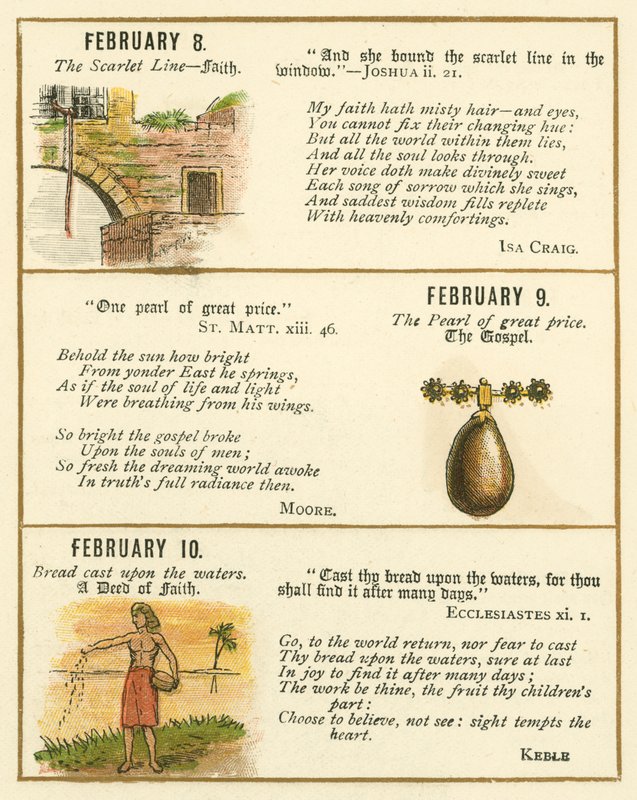 FEBRUARY 8.
The Scarlet Line—Faith.
"And she bound the scarlet line in the
window."—JOSHUA ii. 21.
My faith hath misty hair—and eyes,
You cannot fix their changing hue:
But all the world within them lies,
And all the soul looks through.
Her voice doth make divinely sweet
Each song of sorrow which she sings,
And saddest wisdom fills replete
With heavenly comfortings.
ISA CRAIG.
FEBRUARY 9.
The Pearl of great price.
The Gospel.
"One pearl of great price."
ST. MATT. xiii. 46.
Behold the sun how bright
From yonder East he springs,
As if the soul of life and light
Were breathing from his wings.
So bright the gospel broke
Upon the souls of men;
So fresh the dreaming world awoke
In truth's full radiance then.
MOORE.
FEBRUARY 10.
Bread cast upon the waters.
A Deed of Faith.
"Cast thy bread upon the waters, for thou
shall find it after many days."
ECCLESIASTES xi. 1.
Go, to the world return, nor fear to cast
Thy bread upon the waters, sure at last
In joy to find it after many days;
The work be thine, the fruit thy children's
part:
Choose to believe, not see: sight tempts the
heart.
KEBLE